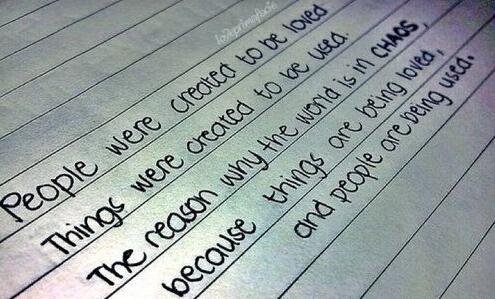 People were created to be loved
Things were created to be used.
The reason why the world is in CHAOS,
because things are being loved,
and people are being used.